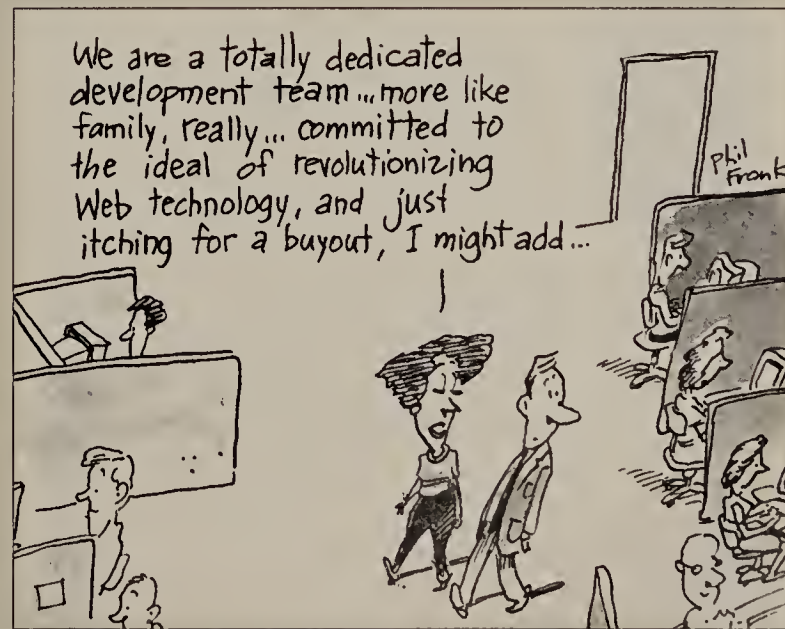 We are a totally dedicated
development team...more like
family, really... committed to
the ideal of revolutionizing
Web technology, and just
itching for a buyout, I might add...
phil
Frank